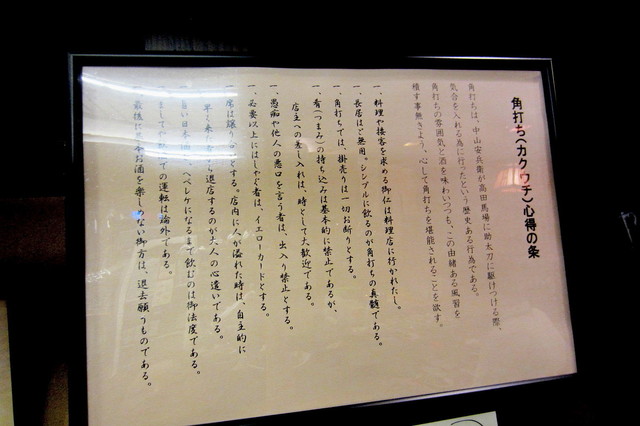 角打ち(カクウチ)心得の条
角打ちは、中山安兵衛が高田馬場に助太刀に駆けつける際、
気合を入れる為に行ったという歴史ある行為である。
角打ちの雰囲気と酒を味わいつつも、この由緒ある風習を
積す事無きよう、心して角打ちを堪能されることを欲す。
一、料理や接客を求める御仁は料理店に行かれたし。
一、長居はご無用。シンプルに飲るのが角打ちの真髄である。
一、角打ちでは、掛売りは一切お断りとする。
一、肴(つまみ)の持ち込みは基本的に禁止であるが、
店主への差し入れは、時として大歓迎である。
一、愚痴や他人の悪口を言う者は、出入り禁止とする。
一、必要以上にはしゃぐ者は、イエローカードとする。
一、席は譲り とする。店内に人が溢れた時は、自主的に
早く来 退店するのが大人の心遣いである。
日本 ベレケになるまで飲むのは御法度である。
まして での運転は論外である。
最後に お酒を楽しめない御方は、退去願うものである。